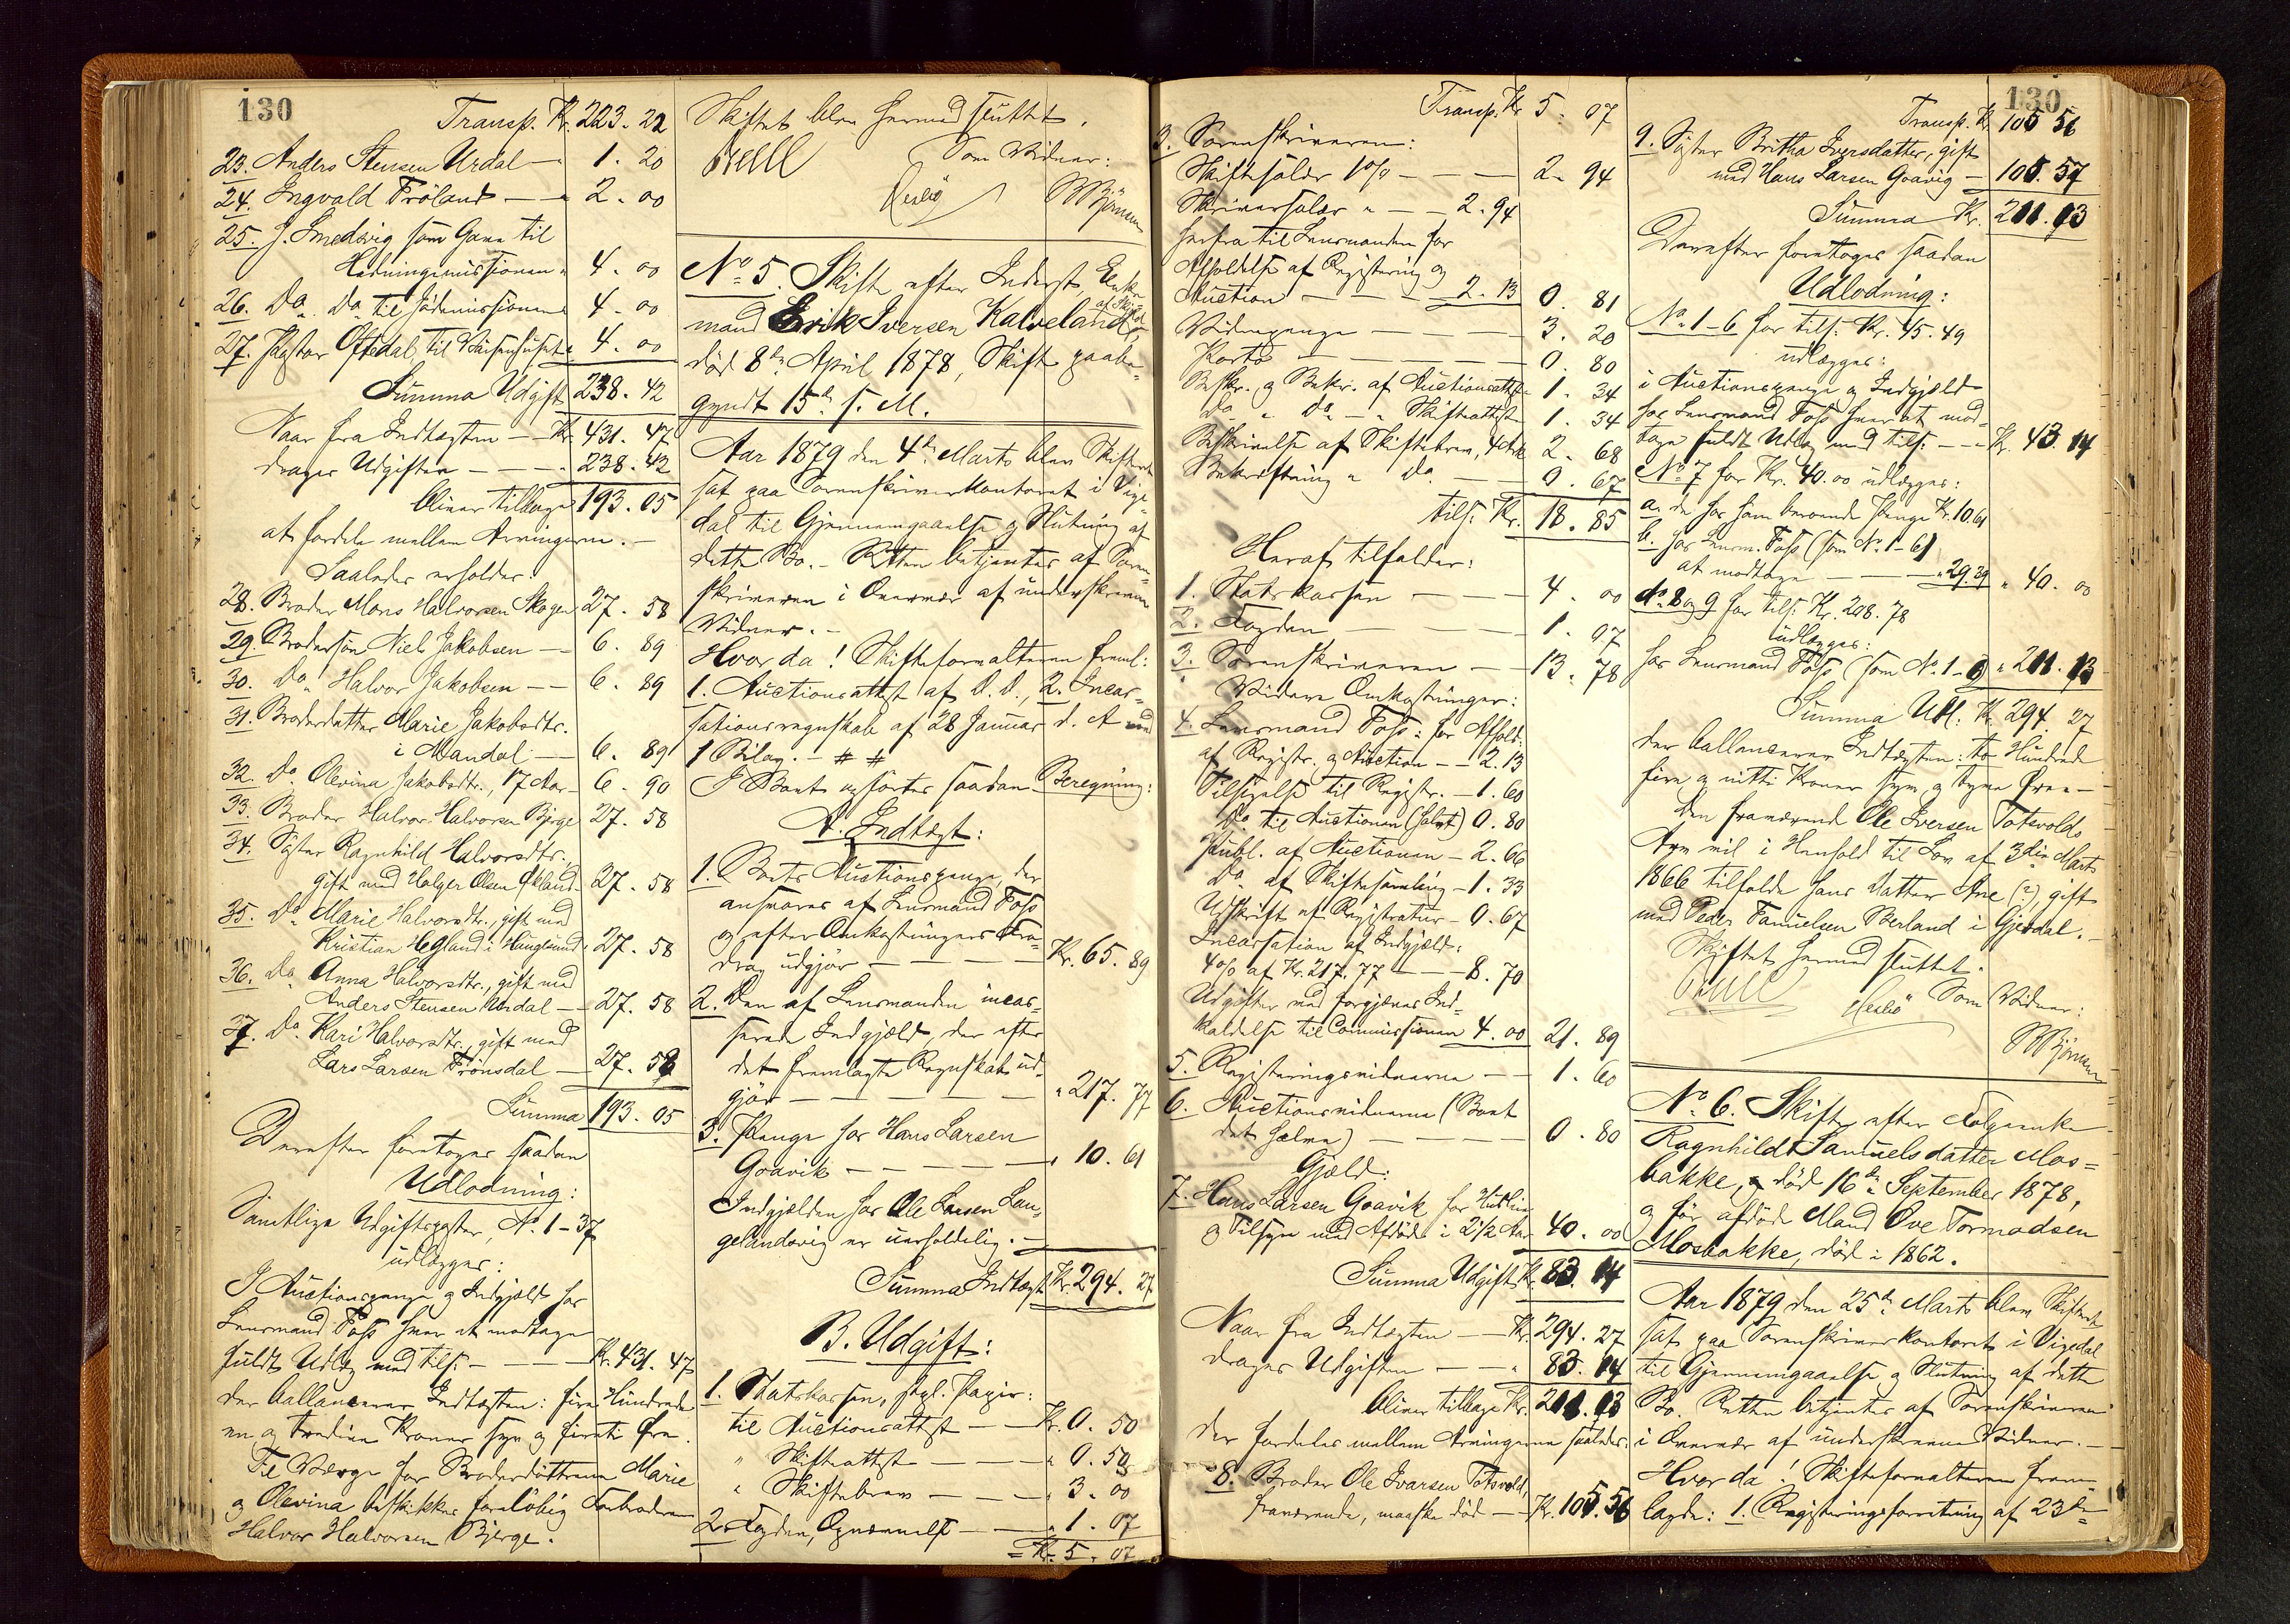 130
Transp. Kr. 223. 22
23. Anders Stensen Urdal — „ 1. 20
24. Ingvald Fröland — „ 2. 00
25. J. Smedsvig som Gave til
Hedningemissionen „ 4. 00
26. Do. Do. til Jödemissionen „ 4. 00
27. Pastor Oftedal, til Waisenhuset „ 4. 00
Summa Udgift 238. 42
Naar fra Indtægten — Kr. 431. 47
drages Udgiften — „ 238. 42
bliver tilbage 193. 05
at fordele mellem Arvingerne. —
Saaledes erholder:
28. Broder Mons Halvorsen Skogen 27. 58
29. Brodersön Niels Jakobsen — 6. 89
30. Do. Halvor Jakobsen — 6. 89
31. Broderdatter Marie Jakobsdtr.
i Mandal — 6. 89
32. Do. Olevina Jakobsdtr., 17 Aar 6. 90
33. Broder Halvor Halvorsen Bjerge 27. 58
34. Söster Ragnhild Halvorsdtr.,
gift med Holger Olsen Ökland 27. 58
35. Do. Marie Halvorsdtr., gift med
Kristian Hegland i Haugesund 27. 58
36. Do. Anna Halvorsdtr., gift med
Anders Stensen Urdal — 27. 58
37. Do. Kari Halvorsdtr., gift med
Lars Larsen Frönsdal — 27. 58
Summa 193. 05
Derefter foretoges saadan
Udlodning:
Samtlige Udgiftsposter, No. 1–37
udlægges:
I Auctionspenge og Indgjæld hos
Lensmand Foss hver at modtage
fuldt Udlæg med tils. — Kr. 431. 47
der ballancerer Indtægten: fire Hundrede
en og tredive Kroner syv og firti Öre.
Til Værge for Broderdöttrene Marie
og Olevina beskikkes forelöbig Farbroderen
Halvor Halvorsen Bjerge.
Skiftet blev hermed sluttet.
Som Vidner:
No. 5. Skifte efter Inderst, Enke-
mand Erik Iversen Kalveland af Skjold,
död 8de April 1878, Skift paabe-
gyndt 15de s. M.
Aar 1879 den 4de Marts blev Skifteret
sat paa Sorenskriverkontoret i Vige-
dal til Gjennemgaaelse og Slutning af
dette Bo. — Retten betjentes af Soren-
skriveren i Overvær af underskrevne
Vidner. —
Hvor da! Skifteforvalteren freml.:
1. Auctionsattest af D. D., 2. Incas-
sationsregnskab af 28 Januar d. A. med
1 Bilag. — # #
I Boet opförtes saadan Beregning:
A. Indtægt:
1. Boets Auctionspenge, der
ansvares af Lensmand Foss
og efter Omkostningers Fra-
drag udgjör — Kr. 65. 89
2. Den af Lensmanden incas-
serede Indgjæld, der efter
det fremlagte Regnskab ud-
gjör — „ 217. 77
3. Penge hos Hans Larsen
Goavik — „ 10. 61
Indgjælden hos Ole Larsen Lan-
gelandsvig er uerholdelig. —
Summa Indtægt Kr. 294. 27
B. Udgift:
1. Statskassen, stpl. Papir:
til Auctionsattest — Kr. 0. 50
„ Skifteattest — „ 0. 50
„ Skiftebrev — „ 3. 00
2. Fogden, Opnævnelse — „ 1. 07
Kr. 5. 07
130
Transp. Kr. 5. 07
3. Sorenskriveren:
Skiftesalær 1 % — 2. 94
Skriversalær „ — 2. 94
herfra til Lensmanden for
Afholdelse af Registering og
Auction — 2. 13 0. 81
Vidnepenge — 3. 20
Porto — 0. 80
Beskr. og Bekr. af Auctionsattest 1. 34
Do. „ Do. — „ Skifteattest 1. 34
Beskrivelse af Skiftebrev, 4 Ark 2. 68
Bekræftning „ Do. — 0. 67
tils. Kr. 18. 85
Heraf tilfalder:
1. Statskassen — 4. 00
2. Fogden — 1. 07
3. Sorenskriveren — 13. 78
Videre Omkostninger:
4. Lensmand Foss: for Afhold.
af Registr. og Auction — 2. 13
Tilsigelse til Registr. — 1. 60
Do. til Auctionen (halvt) 0. 80
Publ. af Auctionen — 2. 66
Do. af Skiftesamling — 1. 33
Udskrift af Registratur — 0. 67
Incassation af Indgjæld:
4 % af Kr. 217. 77 — 8. 70
Udgifter med forgjæves Ind-
kaldelse til Commissionen 4. 00 21. 89
5. Registeringsvidnerne — 1. 60
6. Auctionsvidnerne (Boet
det halve) — 0. 80
Gjæld:
7. Hans Larsen Goavik for Husly
og Tilsyn med Afdöde i 2 1/2 Aar 40. 00
Summa Udgift Kr. 83. 14
Naar fra Indtægten — Kr. 294. 27
drages Udgiften — „ 83. 14
bliver tilbage Kr. 211. 13
der fordeles mellem Arvingerne saaledes:
8. Broder Ole Ivarsen Totsvold,
fraværende, maaske död — Kr. 105 56
130
Transp. Kr. 105 56
9. Söster Britha Iversdatter, gift
med Hans Larsen Goavig — 105. 57
Summa Kr. 211. 13
Derefter foretoges saadan
Udlodning:
No. 1–6 for tils. Kr. 45. 49
udlægges:
i Auctionspenge og Indgjæld
hos Lensmand Foss hver at mod-
tage fuldt Udlæg med tils. — Kr. 43. 14
No. 7 for Kr. 40. 00 udlægges:
a. de hos ham beroende Penge Kr. 10. 61
b. hos Lensm. Foss (som No. 1–6)
at modtage — „ 29. 39 „ 40. 00
No. 8 og 9 for tils. Kr. 208. 78
udlægges:
hos Lensmand Foss (som No. 1–6) „ 211. 13
Summa Udl. Kr. 294. 27
der ballancerer Indtægten: to Hundrede
fire og nitti Kroner syv og tyve Öre. —
Den fraværende Ole Iversen Totsvolds
Arv vil i Henhold til Lov af 3die Marts
1866 tilfalde hans Datter Ane (?), gift
med Peder Samuelsen Berland i Gjesdal. —
Skiftet hermed sluttet.
Som Vidner:
No. 6. Skifte efter Folgeenke
Ragnhild Samuelsdatter Mos-
bakke, död 16de September 1878,
og för afdöde Mand Ove Tormodsen
Mosbakke, död i 1862.
Aar 1879 den 25de Marts blev Skifteret
sat paa Sorenskriverkontoret i Vigedal
til Gjennemgaaelse og Slutning af dette
Bo. Retten betjentes af Sorenskriveren
i Overvær af underskrevne Vidner. —
Hvor da! Skifteforvalteren frem-
lagde: 1. Registeringsforretning af 23de